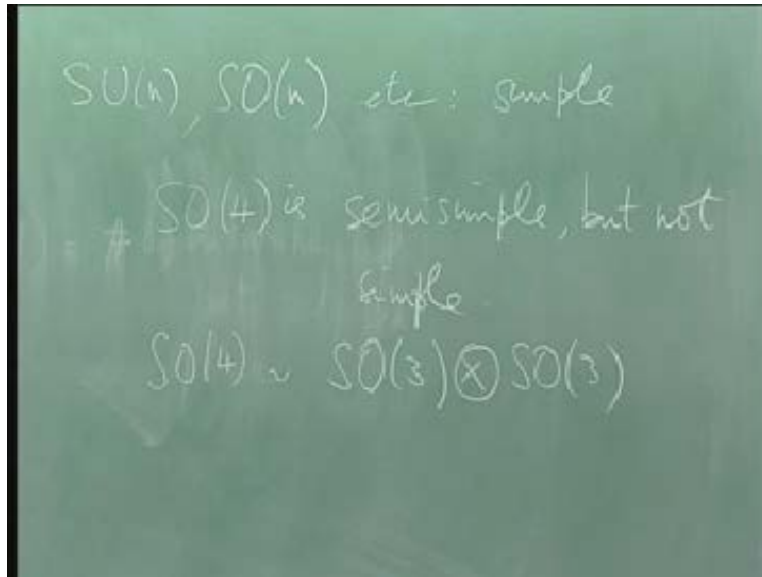 SU(n), SO(n) etc: simple
SO(4) is semisimple, but not
simple.
SO(4) ~ SO(3) ⊗ SO(3)